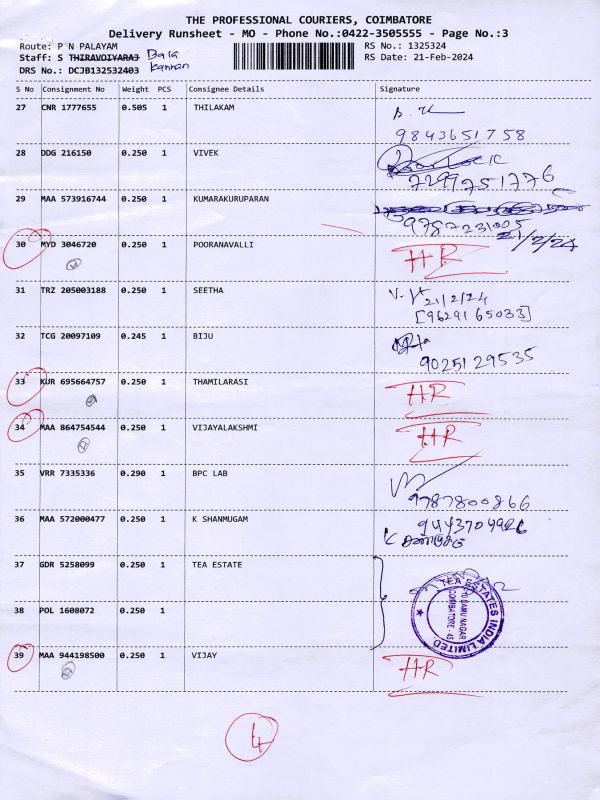 THE PROFESSIONAL COURIERS, COIMBATORE
Delivery Runsheet - MO - Phone No.:0422-3505555 - Page No.:3
Route: P N PALAYAM
RS No.: 1325324
Staff: S THIRAVOIYARAJ Bala
RS Date: 21-Feb-2024
DRS No.: DCJB132532403 Kannan
S No Consignment No Weight PCS Consignee Details Signature
27 CNR 1777655 0.505 1 THILAKAM
9843651758
28 DDG 216150 0.250 1 VIVEK
7299751776
29 MAA 573916744 0.250 1 KUMARAKURUPARAN
9787231005
21/2/24
30 MYD 3046720 0.250 1 POORANAVALLI HR
31 TRZ 205003188 0.250 1 SEETHA 21/2/24
[9629165033]
32 TCG 20097109 0.245 1 BIJU
9025129535
33 KUR 695664757 0.250 1 THAMILARASI HR
34 MAA 864754544 0.250 1 VIJAYALAKSHMI HR
35 VRR 7335336 0.290 1 BPC LAB
9787800866
36 MAA 572000477 0.250 1 K SHANMUGAM 9443704926
37 GDR 5258099 0.250 1 TEA ESTATE
TEA ESTATES INDIA LIMITED
COIMBATORE - 45
38 POL 1608072 0.250 1
39 MAA 944198500 0.250 1 VIJAY HR
4